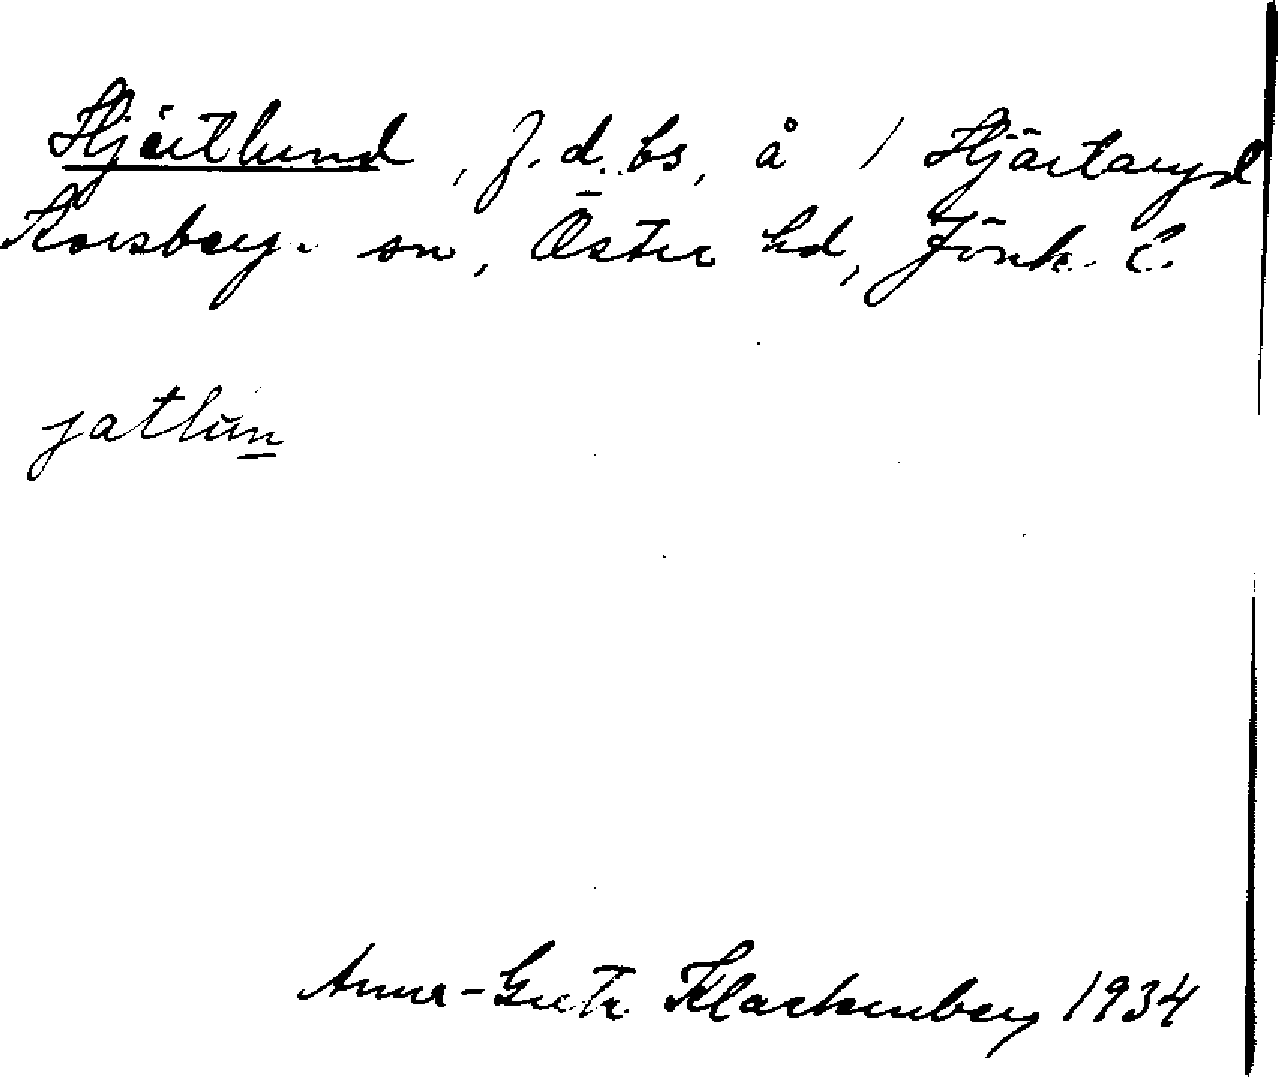 Hjärtlund, f.d. bs, å 1 Hjärtaryd
Korsberga sn, Östra hd, Jönk. l.
jatlun
Anna-Greta Klackenberg 1934